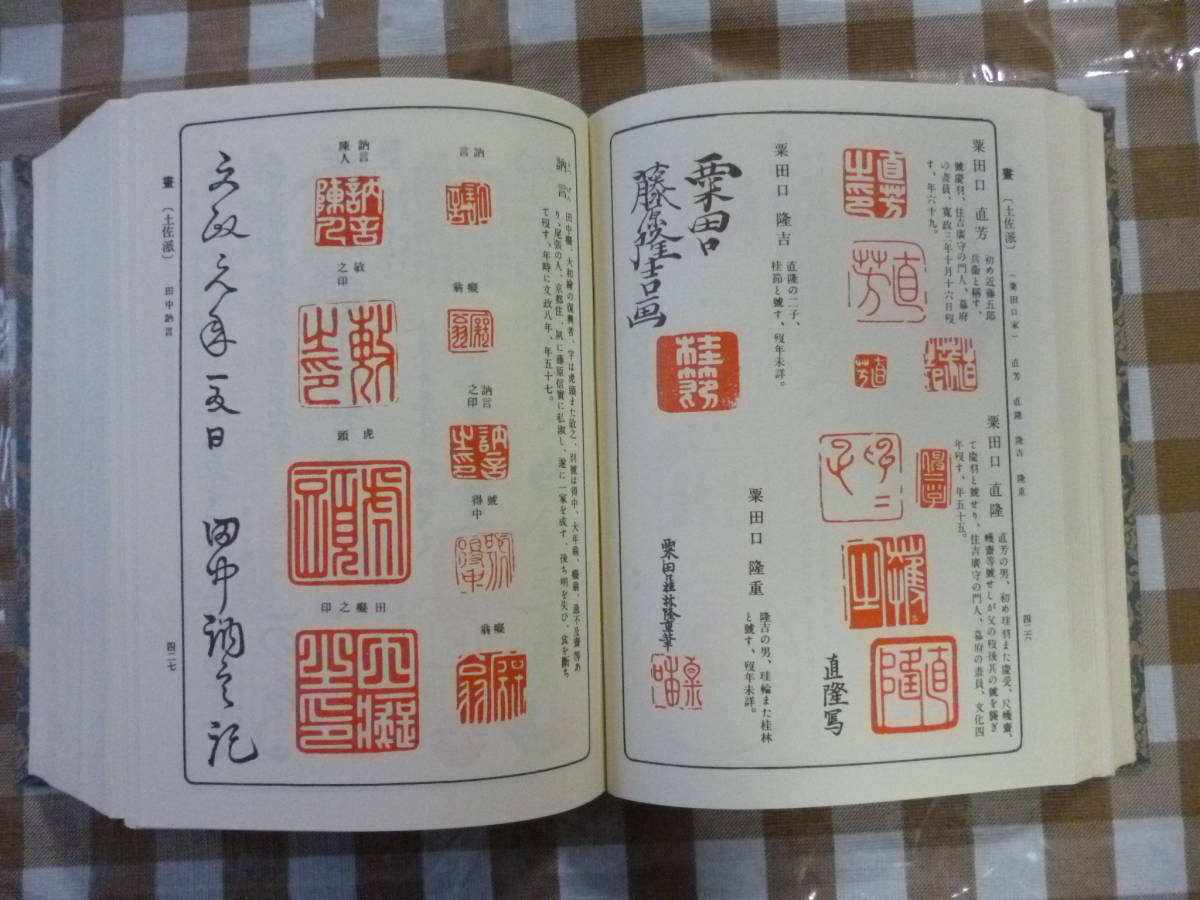 畫
〔土佐派〕
(粟田口家)
直芳
直隆
隆吉
隆重
四二六
粟田口 直芳
初め近藤五郎
兵衞と稱す、
號慶羽、住吉廣守の門人、幕府
の畫員、寬政三年十月十六日歿
す、年六十九。
直芳
之印
直芳
直芳
粟田口 直隆
直芳の男、初め桂羽また慶受、尺蠖齋、
蠖齋等號せしが父の歿後其の號を襲ぎ
て慶羽と號せり、住吉廣守の門人、幕府の畫員、文化四
年歿す、年五十五。
直隆
直隆写
粟田口 隆吉
直隆の二子、
桂笏と號す、歿年未詳。
粟田口
藤原隆吉画
桂笏
粟田口 隆重
隆吉の男、珪輪また桂林
と號す、歿年未詳。
粟田口桂林隆重筆
訥言
田中癡、大和繪の復興者、字は虎頭また敏之、別號は得中、大年痴、癡翁、過不及齋等あ
り、尾張の人、京都住、夙に藤原信實に私淑し、遂に一家を成す、後ち明を失ひ、食を斷ち
て歿す、年時に文政八年、年五十七。
訥言
癡翁
訥言
之印
訥言
之印
號
得中
號
得中
癡翁
訥言
陳人
訥言
陳人
敏
之印
敏
之印
虎頭
虎頭
田癡之印
文政元年一五日 田中訥言記
畫
〔土佐派〕
田中訥言
四二七